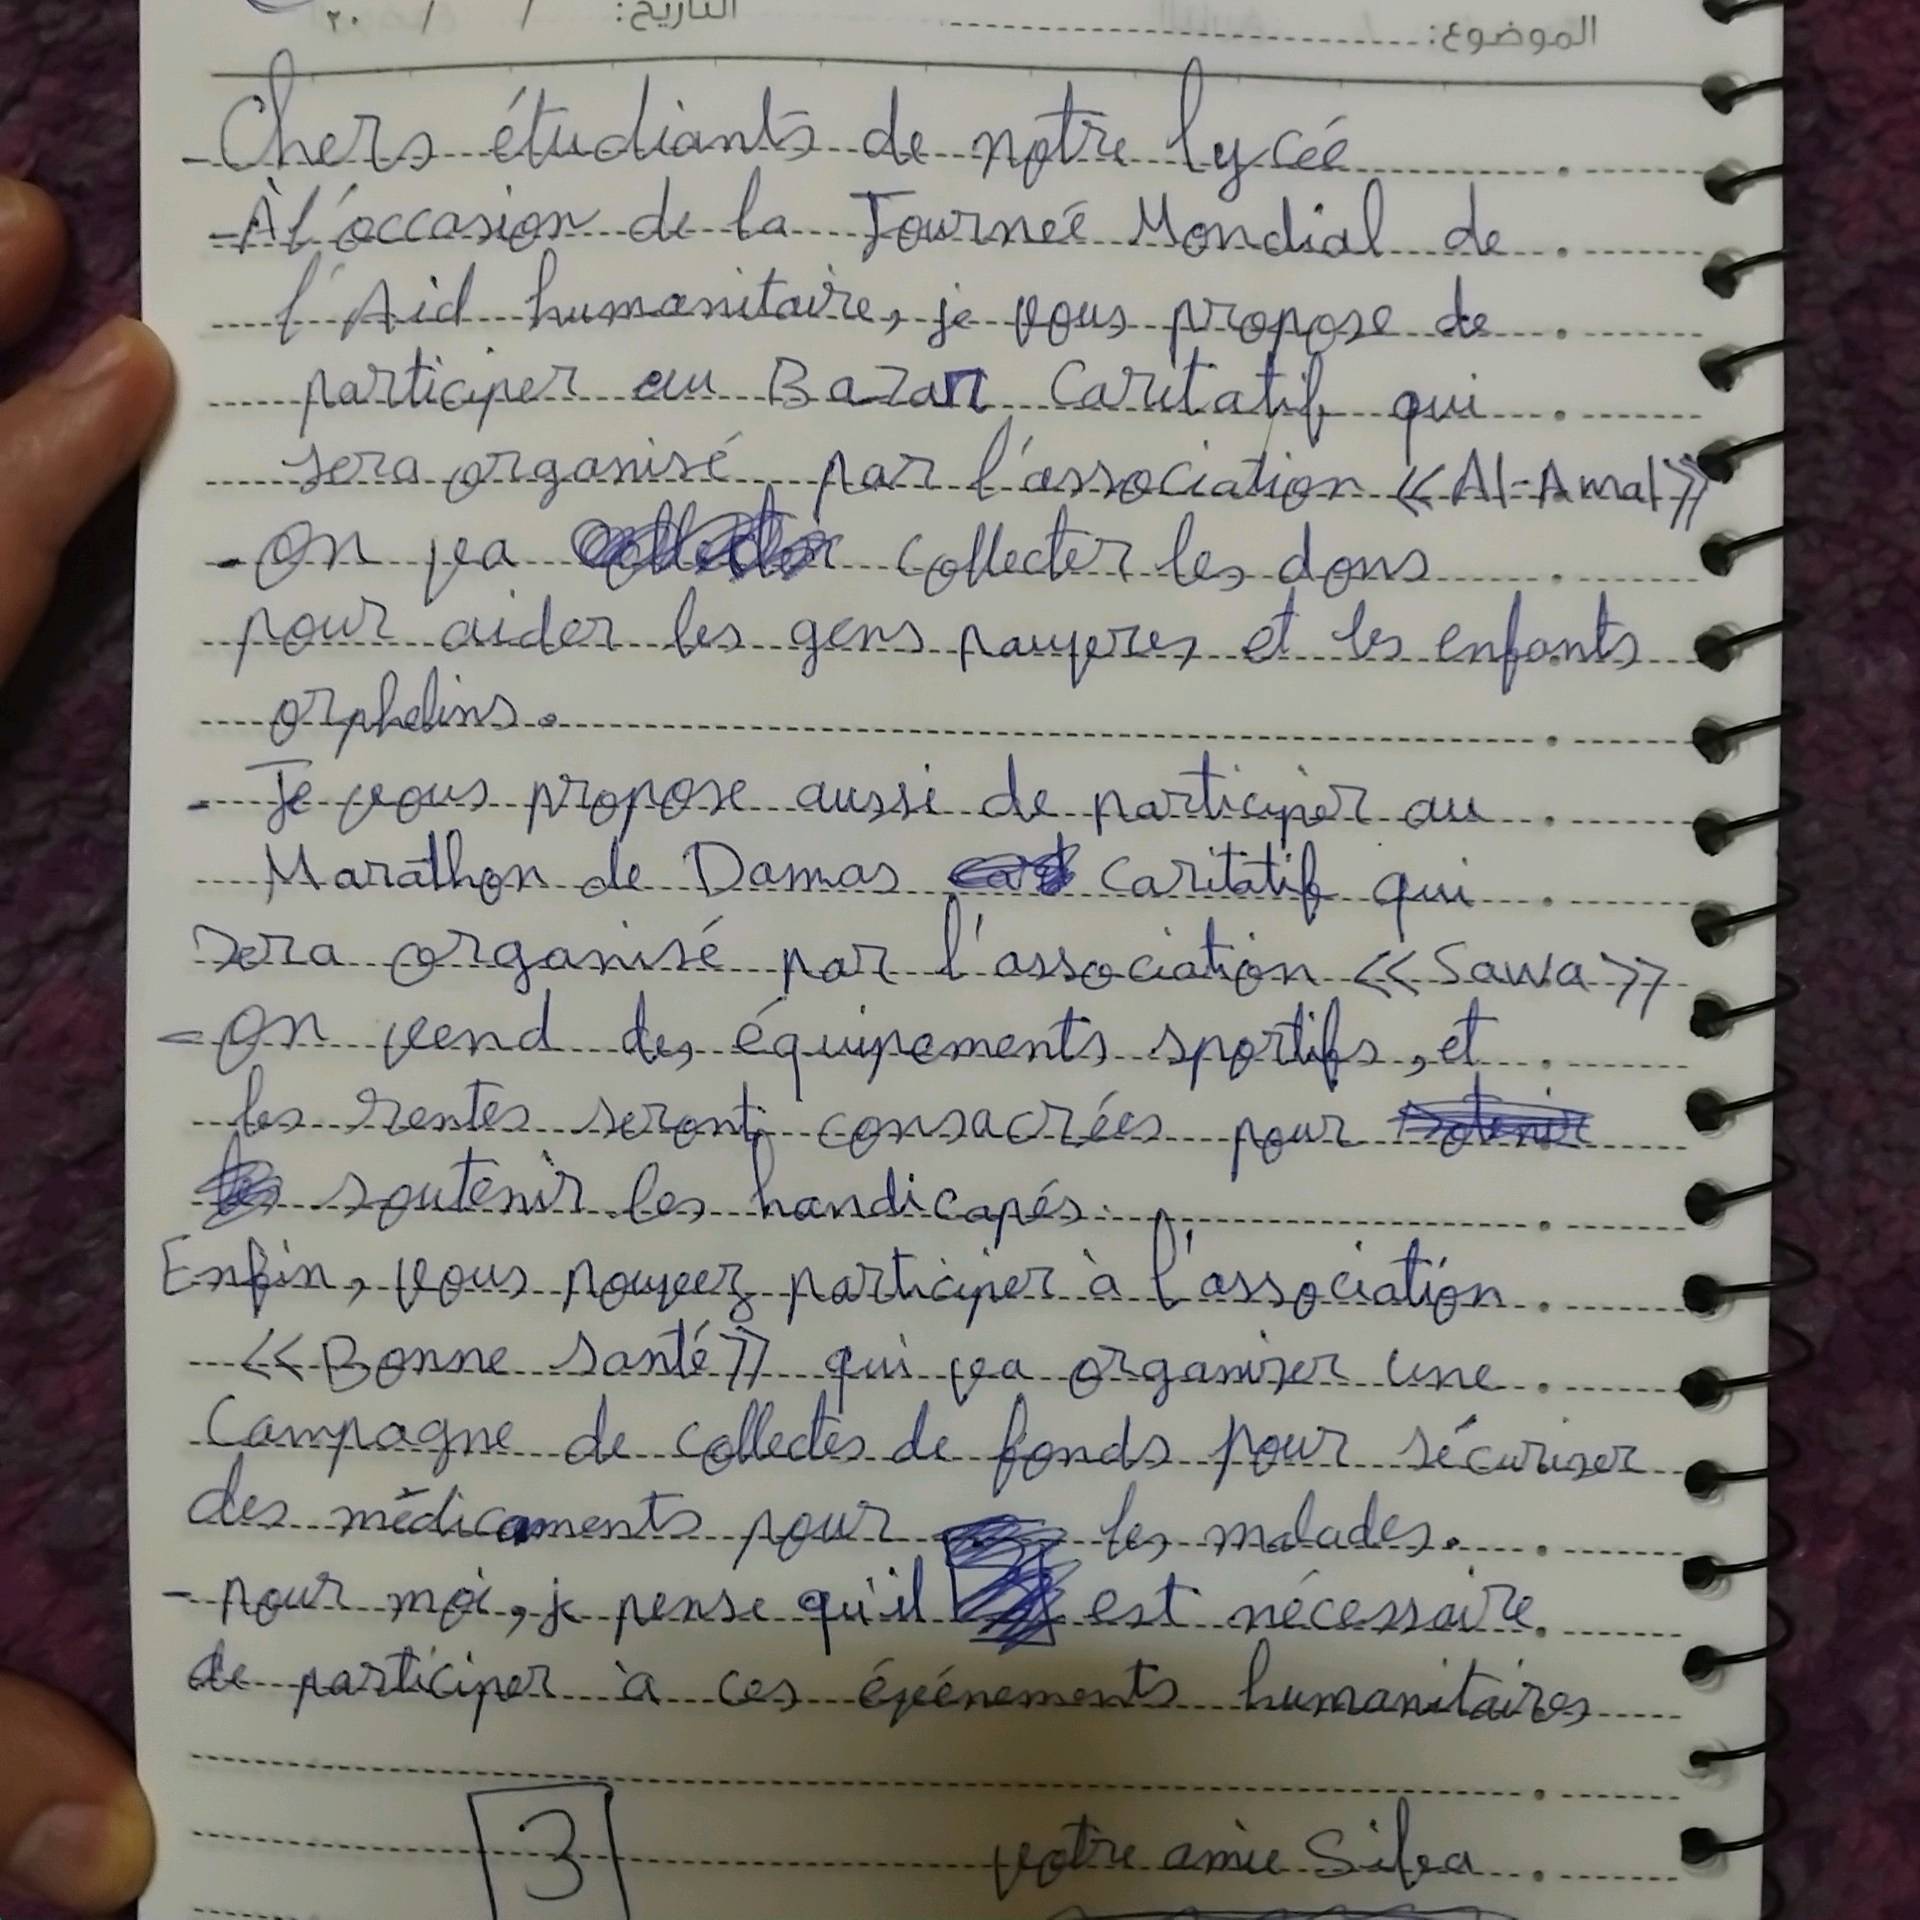 الموضوع: التاريخ: / / ٢٠
- Chers étudiants de notre lycée
- À l'occasion de la Journeé Mondial de
l'Aid humanitaire, je vous propose de
participer au Bazar Caritatif qui
sera organisé par l'association «Al-Amal»
- On va collecter les dons
pour aider les gens pauvres et les enfants
orphelins.
- Je vous propose aussi de participer au
Marathon de Damas caritatif qui
sera organisé par l'association «Sawa»
- On vend des équipements sportifs, et
les rentes seront consacrées pour
soutenir les handicapés.
Enfin, vous pouvez participer à l'association
«Bonne santé» qui va organiser une
Campagne de collectes de fonds pour sécuriser
des médicaments pour les malades.
- pour moi, je pense qu'il est nécessaire
de participer à ces événements humanitaires
3
votre amie Silva